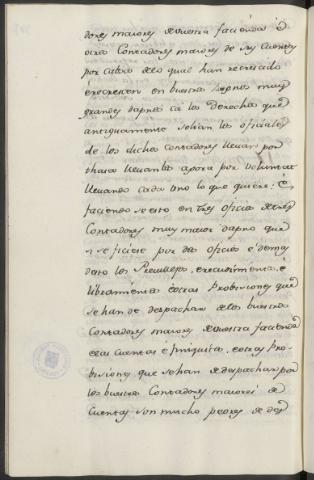 dores maiores de vuestra facienda é
otros Contadores maiores de sus Cuentas
por cabsa de lo qual han recrecido
é recrescen en buestros Regnos muy
grandes dapnos ca los derechos que
antiguamente solian los oficiales
de los dichos Contadores llevar por
thasa llevanlos agora por voluntat
llevando cada uno lo que quiere: é
faciendose esto en tres oficios de tres
Contadores muy maior dapno que
si se ficiese por dos oficios é demas
desto los Previllejos, é recudimientos, é
libramientos é otras Probisiones que
se han de despachar de los buestros
Contadores maiores de vuestra facienda
é las cuentas é finiquitos, é otras Pro-
bisiones que se han de despachar por
los buestros Contadores maiores de
Cuentas son mucho peores de des